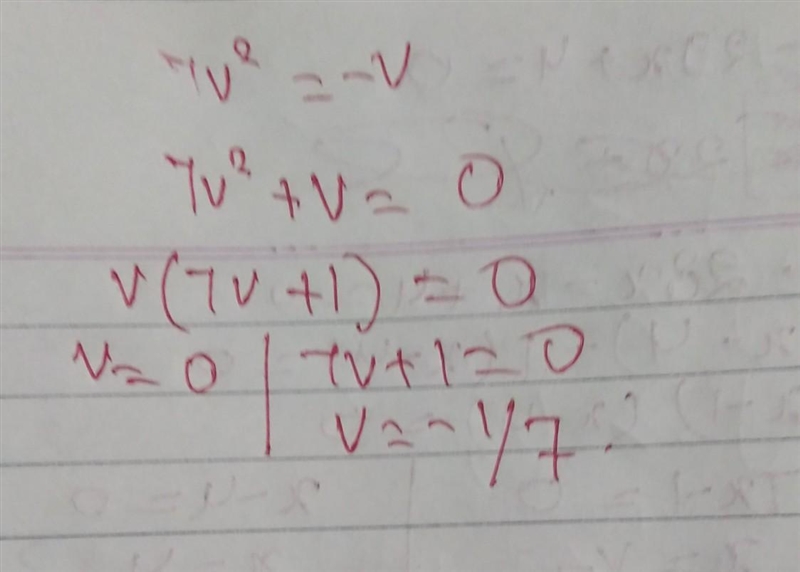 7v² = -v
7v² + v = 0
v(7v + 1) = 0
v = 0 | 7v + 1 = 0
v = -1/7.